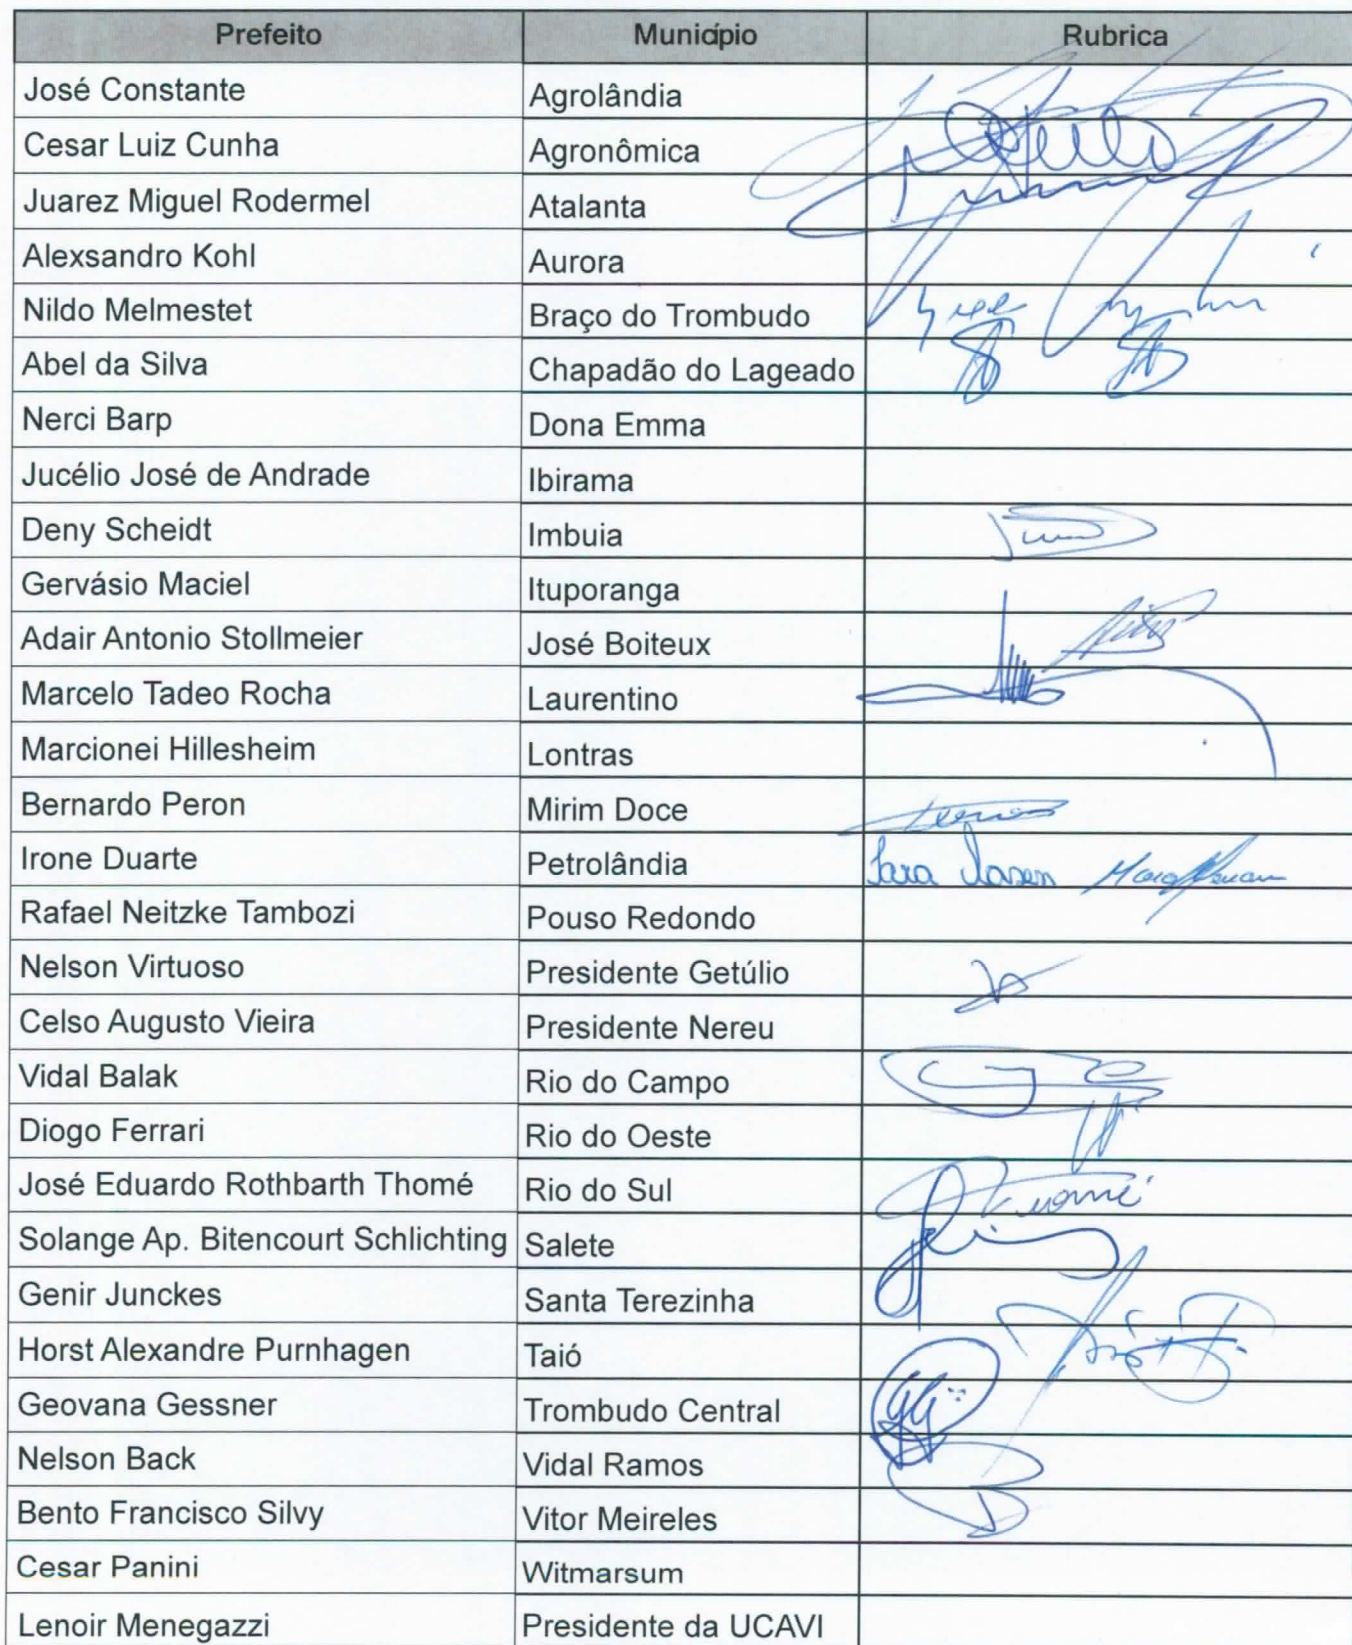 Prefeito Município Rubrica
José Constante Agrolândia
Cesar Luiz Cunha Agronômica
Juarez Miguel Rodermel Atalanta
Alexsandro Kohl Aurora
Nildo Melmestet Braço do Trombudo
Abel da Silva Chapadão do Lageado
Nerci Barp Dona Emma
Jucélio José de Andrade Ibirama
Deny Scheidt Imbuia
Gervásio Maciel Ituporanga
Adair Antonio Stollmeier José Boiteux
Marcelo Tadeo Rocha Laurentino
Marcionei Hillesheim Lontras
Bernardo Peron Mirim Doce
Irone Duarte Petrolândia Sara
Rafael Neitzke Tambozi Pouso Redondo
Nelson Virtuoso Presidente Getúlio
Celso Augusto Vieira Presidente Nereu
Vidal Balak Rio do Campo
Diogo Ferrari Rio do Oeste
José Eduardo Rothbarth Thomé Rio do Sul
Solange Ap. Bitencourt Schlichting Salete
Genir Junckes Santa Terezinha
Horst Alexandre Purnhagen Taió
Geovana Gessner Trombudo Central
Nelson Back Vidal Ramos
Bento Francisco Silvy Vitor Meireles
Cesar Panini Witmarsum
Lenoir Menegazzi Presidente da UCAVI